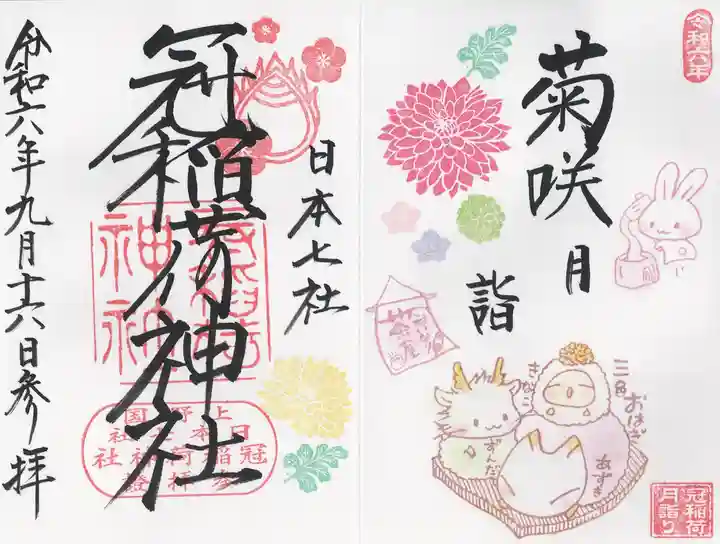 令和六年
菊咲月
詣
きなこ
ずんだ
三色おはぎ
あずき
冠稲荷
月詣り
日本七社
冠稲荷神社
令和六年九月十六日参拝